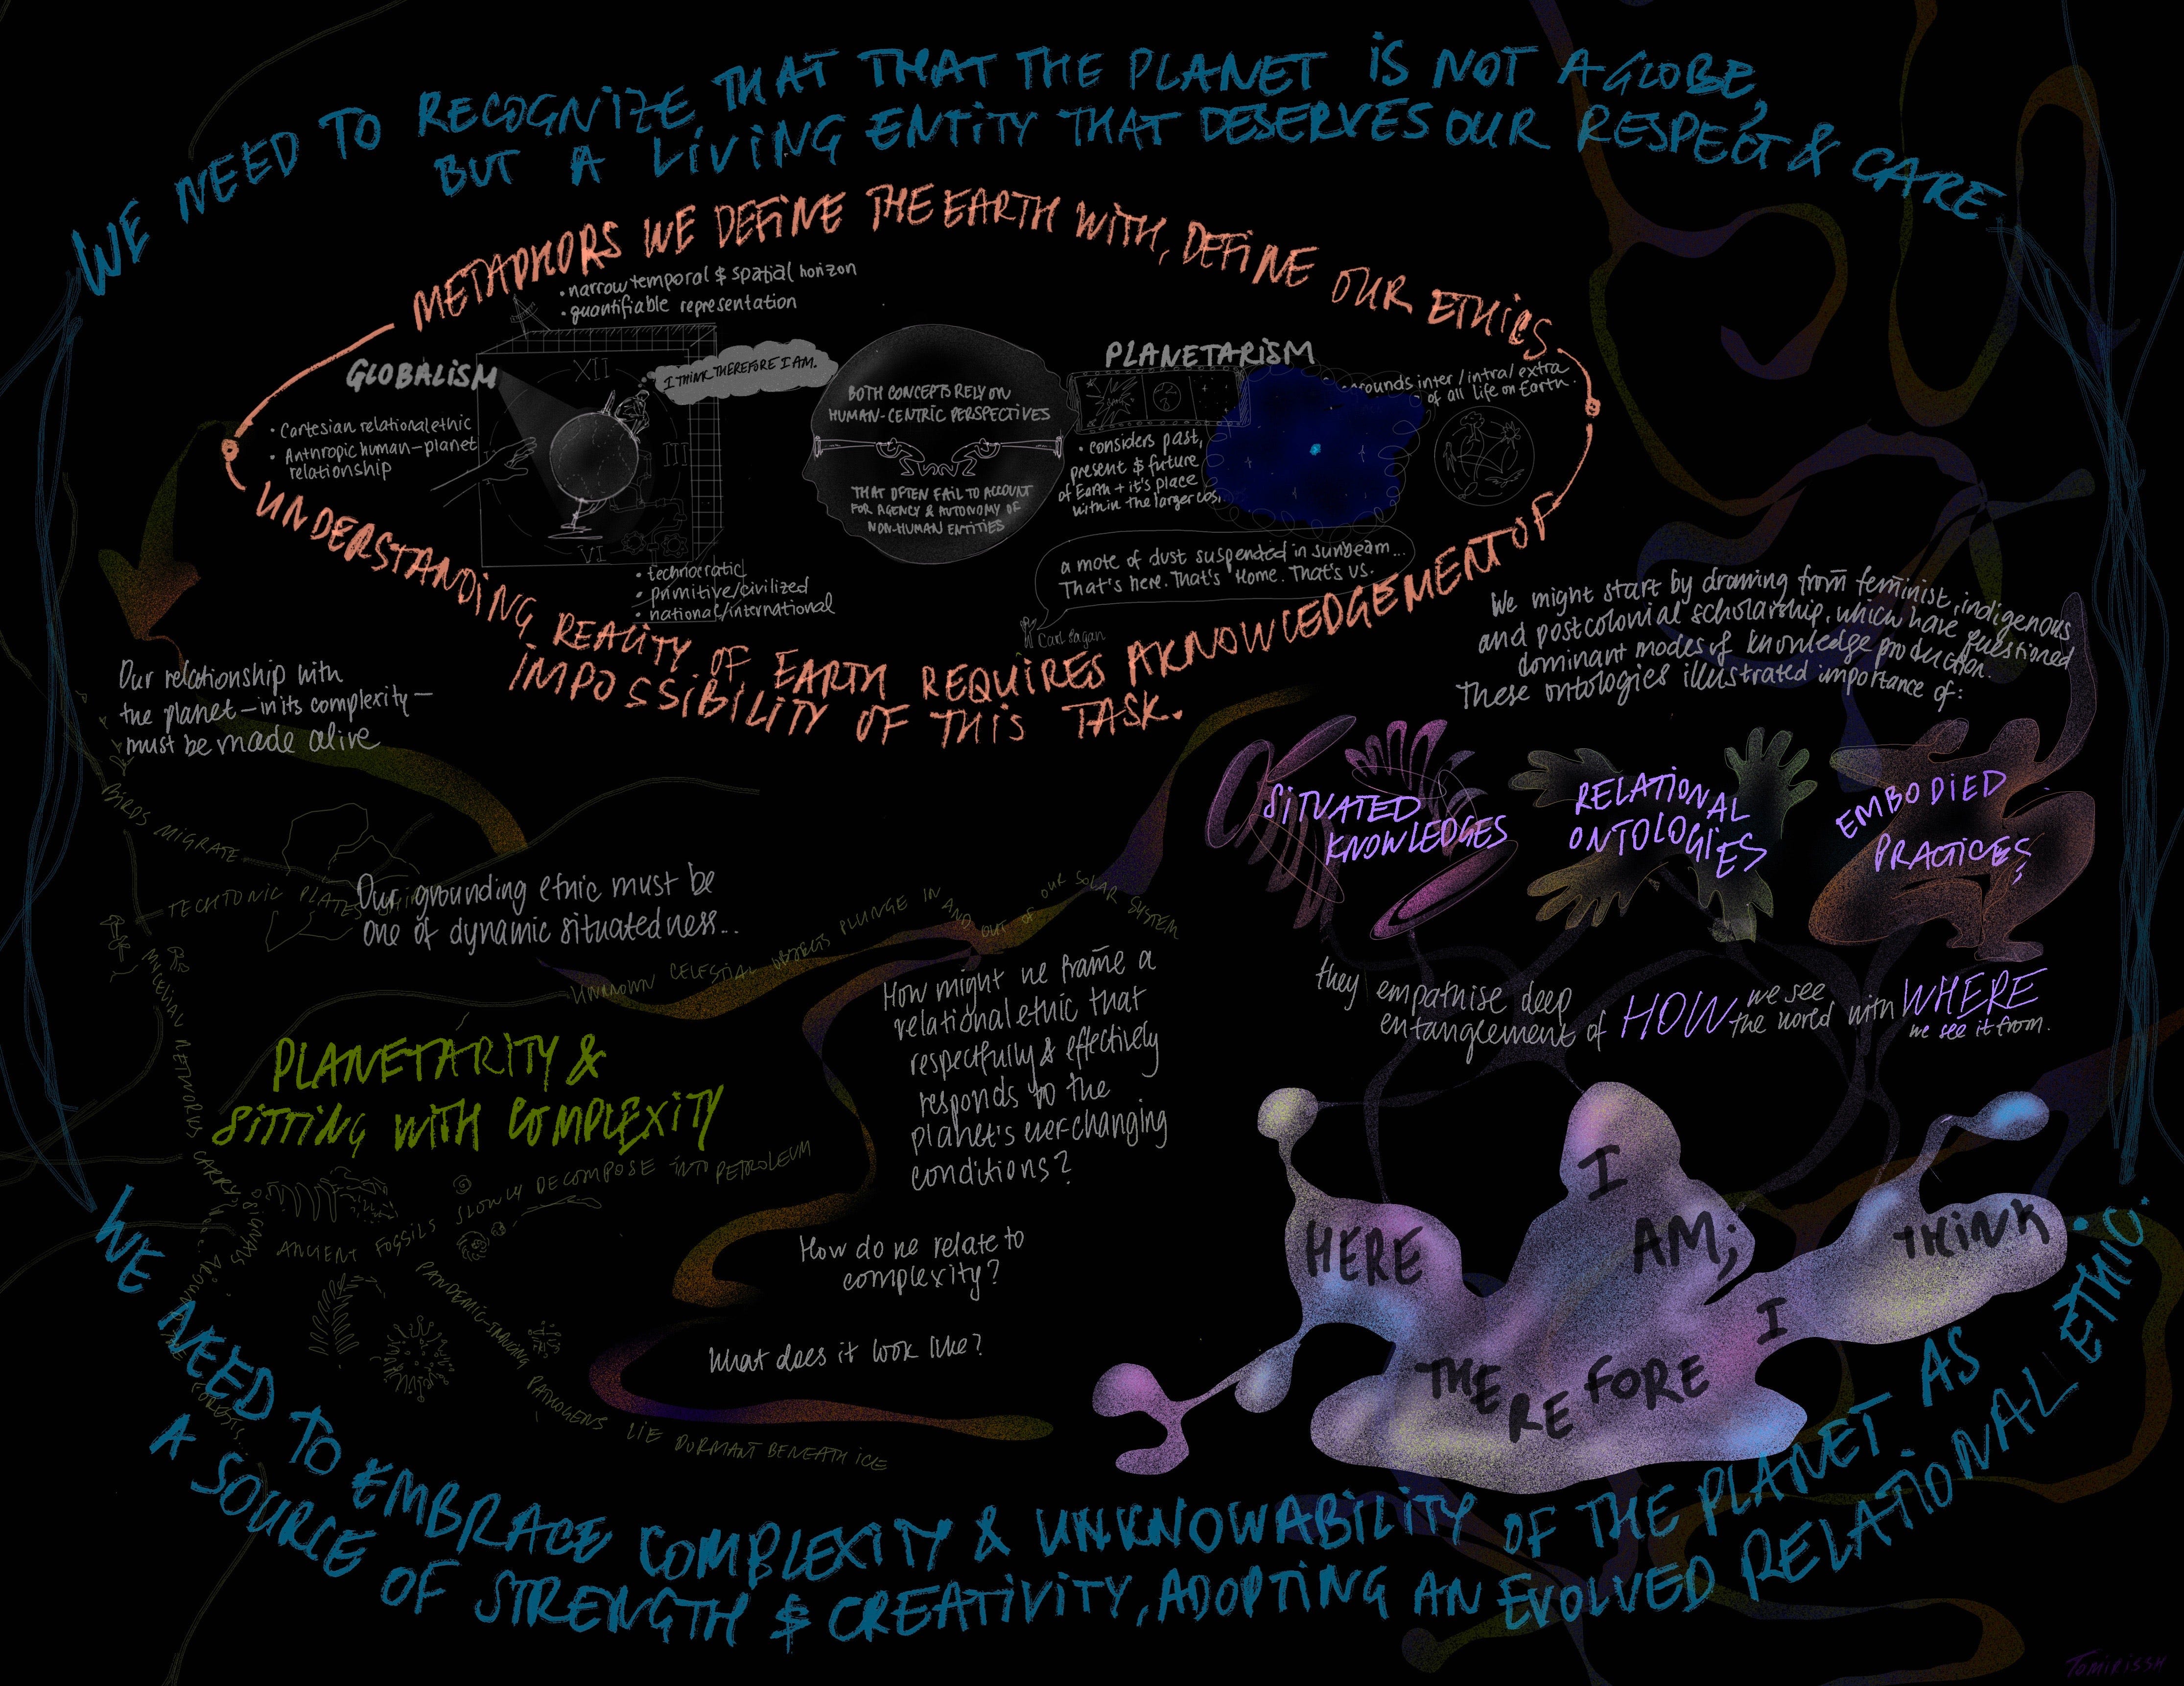 WE NEED TO RECOGNIZE THAT THAT THE PLANET IS NOT A GLOBE,
BUT A LIVING ENTITY THAT DESERVES OUR RESPECT & CARE.
METAPHORS WE DEFINE THE EARTH WITH, DEFINE OUR ETHICS
• narrow temporal & spatial horizon
• quantifiable representation
GLOBALISM
• Cartesian relational ethic
• Anthropic human-planet
relationship
XII
III
VI
I THINK THEREFORE I AM.
• technocratic
• primitive/civilized
• national/international
BOTH CONCEPTS RELY ON
HUMAN-CENTRIC PERSPECTIVES
THAT OFTEN FAIL TO ACCOUNT
FOR AGENCY & AUTONOMY OF
NON-HUMAN ENTITIES
PLANETARISM
inter/intra/extra
of all life on Earth.
• considers past,
present & future
of Earth + it's place
within the larger
a mote of dust suspended in sunbeam...
That's here. That's Home. That's us.
Carl Sagan
UNDERSTANDING REALITY OF EARTH REQUIRES AKNOWLEDGEMENT OF
IMPOSSIBILITY OF THIS TASK.
Our relationship with
the planet — in its complexity —
must be made alive
We might start by drawing from feminist, indigenous
and postcolonial scholarship, which have questioned
dominant modes of knowledge production.
These ontologies illustrated importance of:
SITUATED
KNOWLEDGES
RELATIONAL
ONTOLOGIES
EMBODIED
PRACTICES
they empathise deep
entanglement of HOW we see
the world with WHERE
we see it from.
BIRDS MIGRATE
TECHTONIC PLATES
Our grounding ethic must be
one of dynamic situatedness...
UNKNOWN CELESTIAL OBJECTS PLUNGE IN AND OUT OF OUR SOLAR SYSTEM
MYCELIAN NETWORKS CARRY SIGNALS
FORESTS...
PLANETARITY &
SITTING WITH COMPLEXITY
ANCIENT FOSSILS SLOWLY DECOMPOSE INTO PETROLEUM
PANDEMIC-INDUCING PATHOGENS LIE DORMANT BENEATH ICE
How might we frame a
relational ethic that
respectfully & effectively
responds to the
planet's everchanging
conditions?
How do we relate to
complexity?
What does it look like?
HERE
I
AM;
THEREFORE
I
THINK
WE NEED TO EMBRACE COMPLEXITY & UNKNOWABILITY OF THE PLANET AS
A SOURCE OF STRENGTH & CREATIVITY, ADOPTING AN EVOLVED RELATIONAL ETHIC.
TOMIRISSH